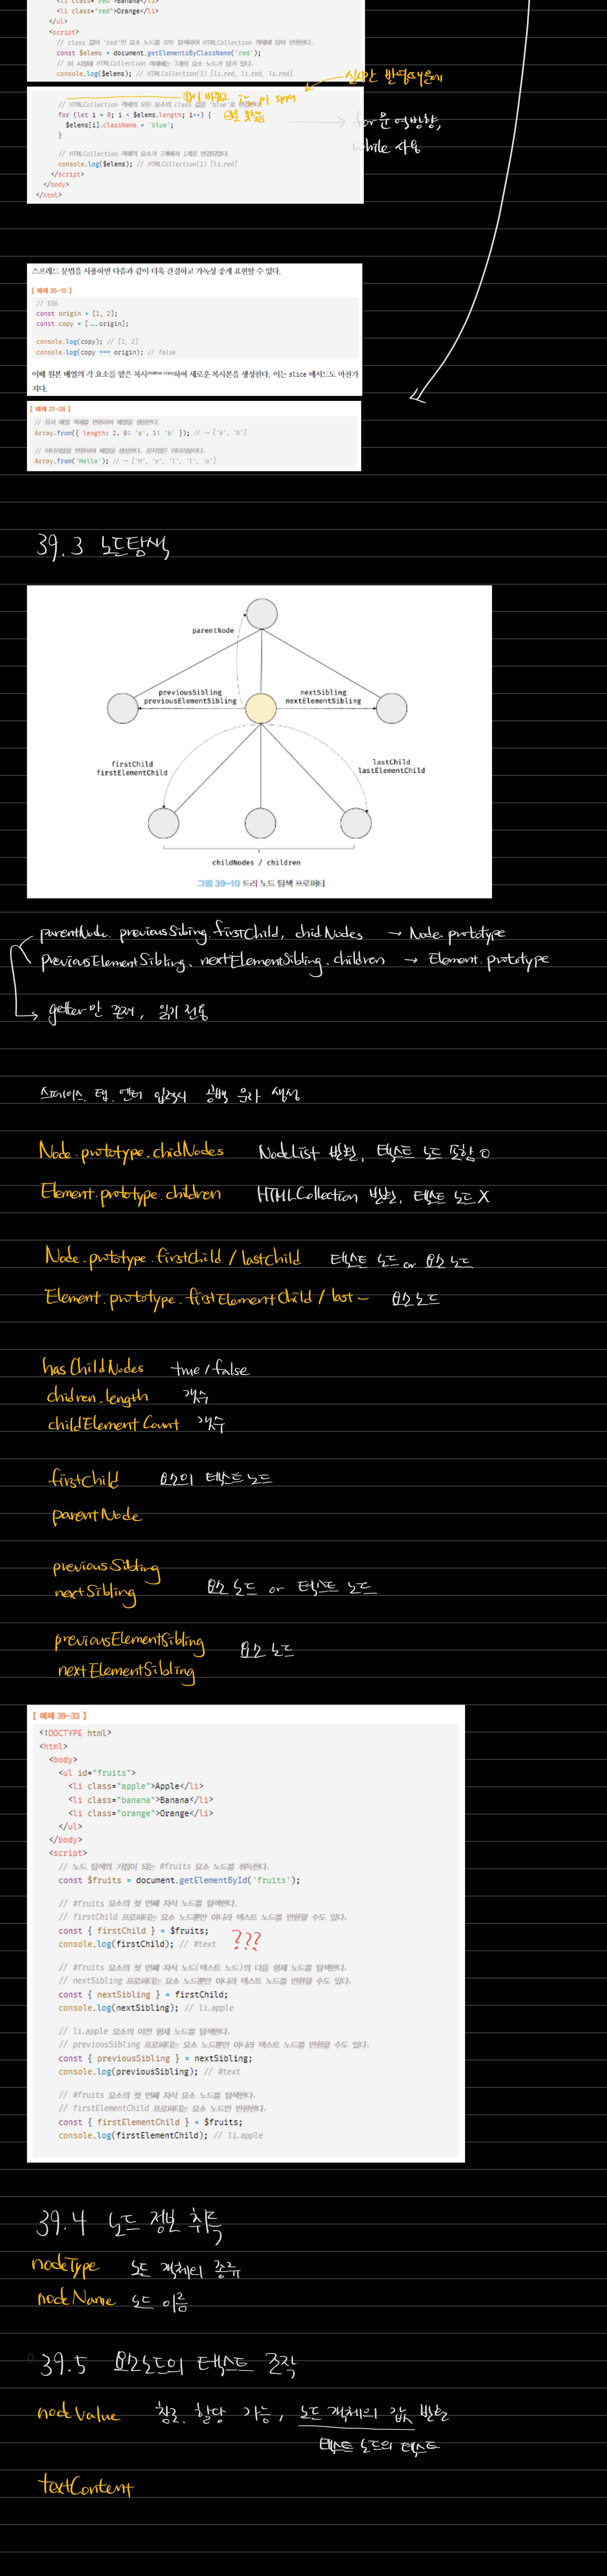 <li class="red">Banana</li>
<li class="red">Orange</li>
</ul>
<script>
// class 값이 'red'인 요소 노드를 모두 탐색하여 HTMLCollection 객체에 담아 반환한다.
const $elems = document.getElementsByClassName('red');
// 이 시점에 HTMLCollection 객체에는 3개의 요소 노드가 담겨 있다.
console.log($elems); // HTMLCollection(3) [li.red, li.red, li.red]
실시간 반영때문에
// HTMLCollection 객체의 모든 요소의 class 값을 'blue'로 변경한다.
for (let i = 0; i < $elems.length; i++) {
$elems[i].className = 'blue';
}
for문 역방향,
while 사용
// HTMLCollection 객체의 요소가 3개에서 1개로 변경되었다.
console.log($elems); // HTMLCollection(1) [li.red]
</script>
</body>
</html>
스프레드 문법을 사용하면 다음과 같이 더욱 간결하고 가독성 좋게 표현할 수 있다.
[ 예제 35-15 ]
// ES6
const origin = [1, 2];
const copy = [...origin];
console.log(copy); // [1, 2]
console.log(copy === origin); // false
이때 원본 배열의 각 요소를 얕은 복사shallow copy하여 새로운 복사본을 생성한다. 이는 slice 메서드도 마찬가
지다.
[ 예제 27-28 ]
// 유사 배열 객체를 변환하여 배열을 생성한다.
Array.from({ length: 2, 0: 'a', 1: 'b' }); // → ['a', 'b']
// 이터러블을 변환하여 배열을 생성한다. 문자열은 이터러블이다.
Array.from('Hello'); // → ['H', 'e', 'l', 'l', 'o']
39.3 노드탐색
parentNode
previousSibling
previousElementSibling
nextSibling
nextElementSibling
firstChild
firstElementChild
lastChild
lastElementChild
childNodes / children
그림 39-10 트리 노드 탐색 프로퍼티
parentNode. previousSibing. firstChild, chidNodes → Node. prototype
previousElementSibling. nextElementSibling. children → Element. prototype
getter만 존재, 읽기 전용
스페이스. 탭. 엔터 입력시 공백 문자 생성
Node.prototype.chidNodes NodeList 반환, 텍스트 노드 포함 O
Element.prototype.children HTMLCollection 반환, 텍스트 노드 X
Node.prototype.firstChild / lastChild 텍스트 노드 or 요소 노드
Element.prototype.firstElementChild / last – 요소노드
hasChildNodes true / false
chidren.length 갯수
childElementCount 갯수
firstChild 요소의 텍스트노드
parentNode
previousSibling
nextSibling 요소 노드 or 텍스트 노드
previousElementSibling 요소 노드
nextElementSibling
[ 예제 39-33 ]
<!DOCTYPE html>
<html>
<body>
<ul id="fruits">
<li class="apple">Apple</li>
<li class="banana">Banana</li>
<li class="orange">Orange</li>
</ul>
</body>
<script>
// 노드 탐색의 기점이 되는 #fruits 요소 노드를 취득한다.
const $fruits = document.getElementById('fruits');
// #fruits 요소의 첫 번째 자식 노드를 탐색한다.
// firstChild 프로퍼티는 요소 노드뿐만 아니라 텍스트 노드를 반환할 수도 있다.
const { firstChild } = $fruits;
console.log(firstChild); // #text ???
// #fruits 요소의 첫 번째 자식 노드(텍스트 노드)의 다음 형제 노드를 탐색한다.
// nextSibling 프로퍼티는 요소 노드뿐만 아니라 텍스트 노드를 반환할 수도 있다.
const { nextSibling } = firstChild;
console.log(nextSibling); // li.apple
// li.apple 요소의 이전 형제 노드를 탐색한다.
// previousSibling 프로퍼티는 요소 노드뿐만 아니라 텍스트 노드를 반환할 수도 있다.
const { previousSibling } = nextSibling;
console.log(previousSibling); // #text
// #fruits 요소의 첫 번째 자식 요소 노드를 탐색한다.
// firstElementChild 프로퍼티는 요소 노드만 반환한다.
const { firstElementChild } = $fruits;
console.log(firstElementChild); // li.apple
39.4 노드 정보 취득
nodeType 노드 객체의 종류
nodeName 노드 이름
39.5 요소노드의 텍스트 조작
nodeValue 참조. 할당 가능, 노드 객체의 값 반환
텍스트 노드의 텍스트
textContent